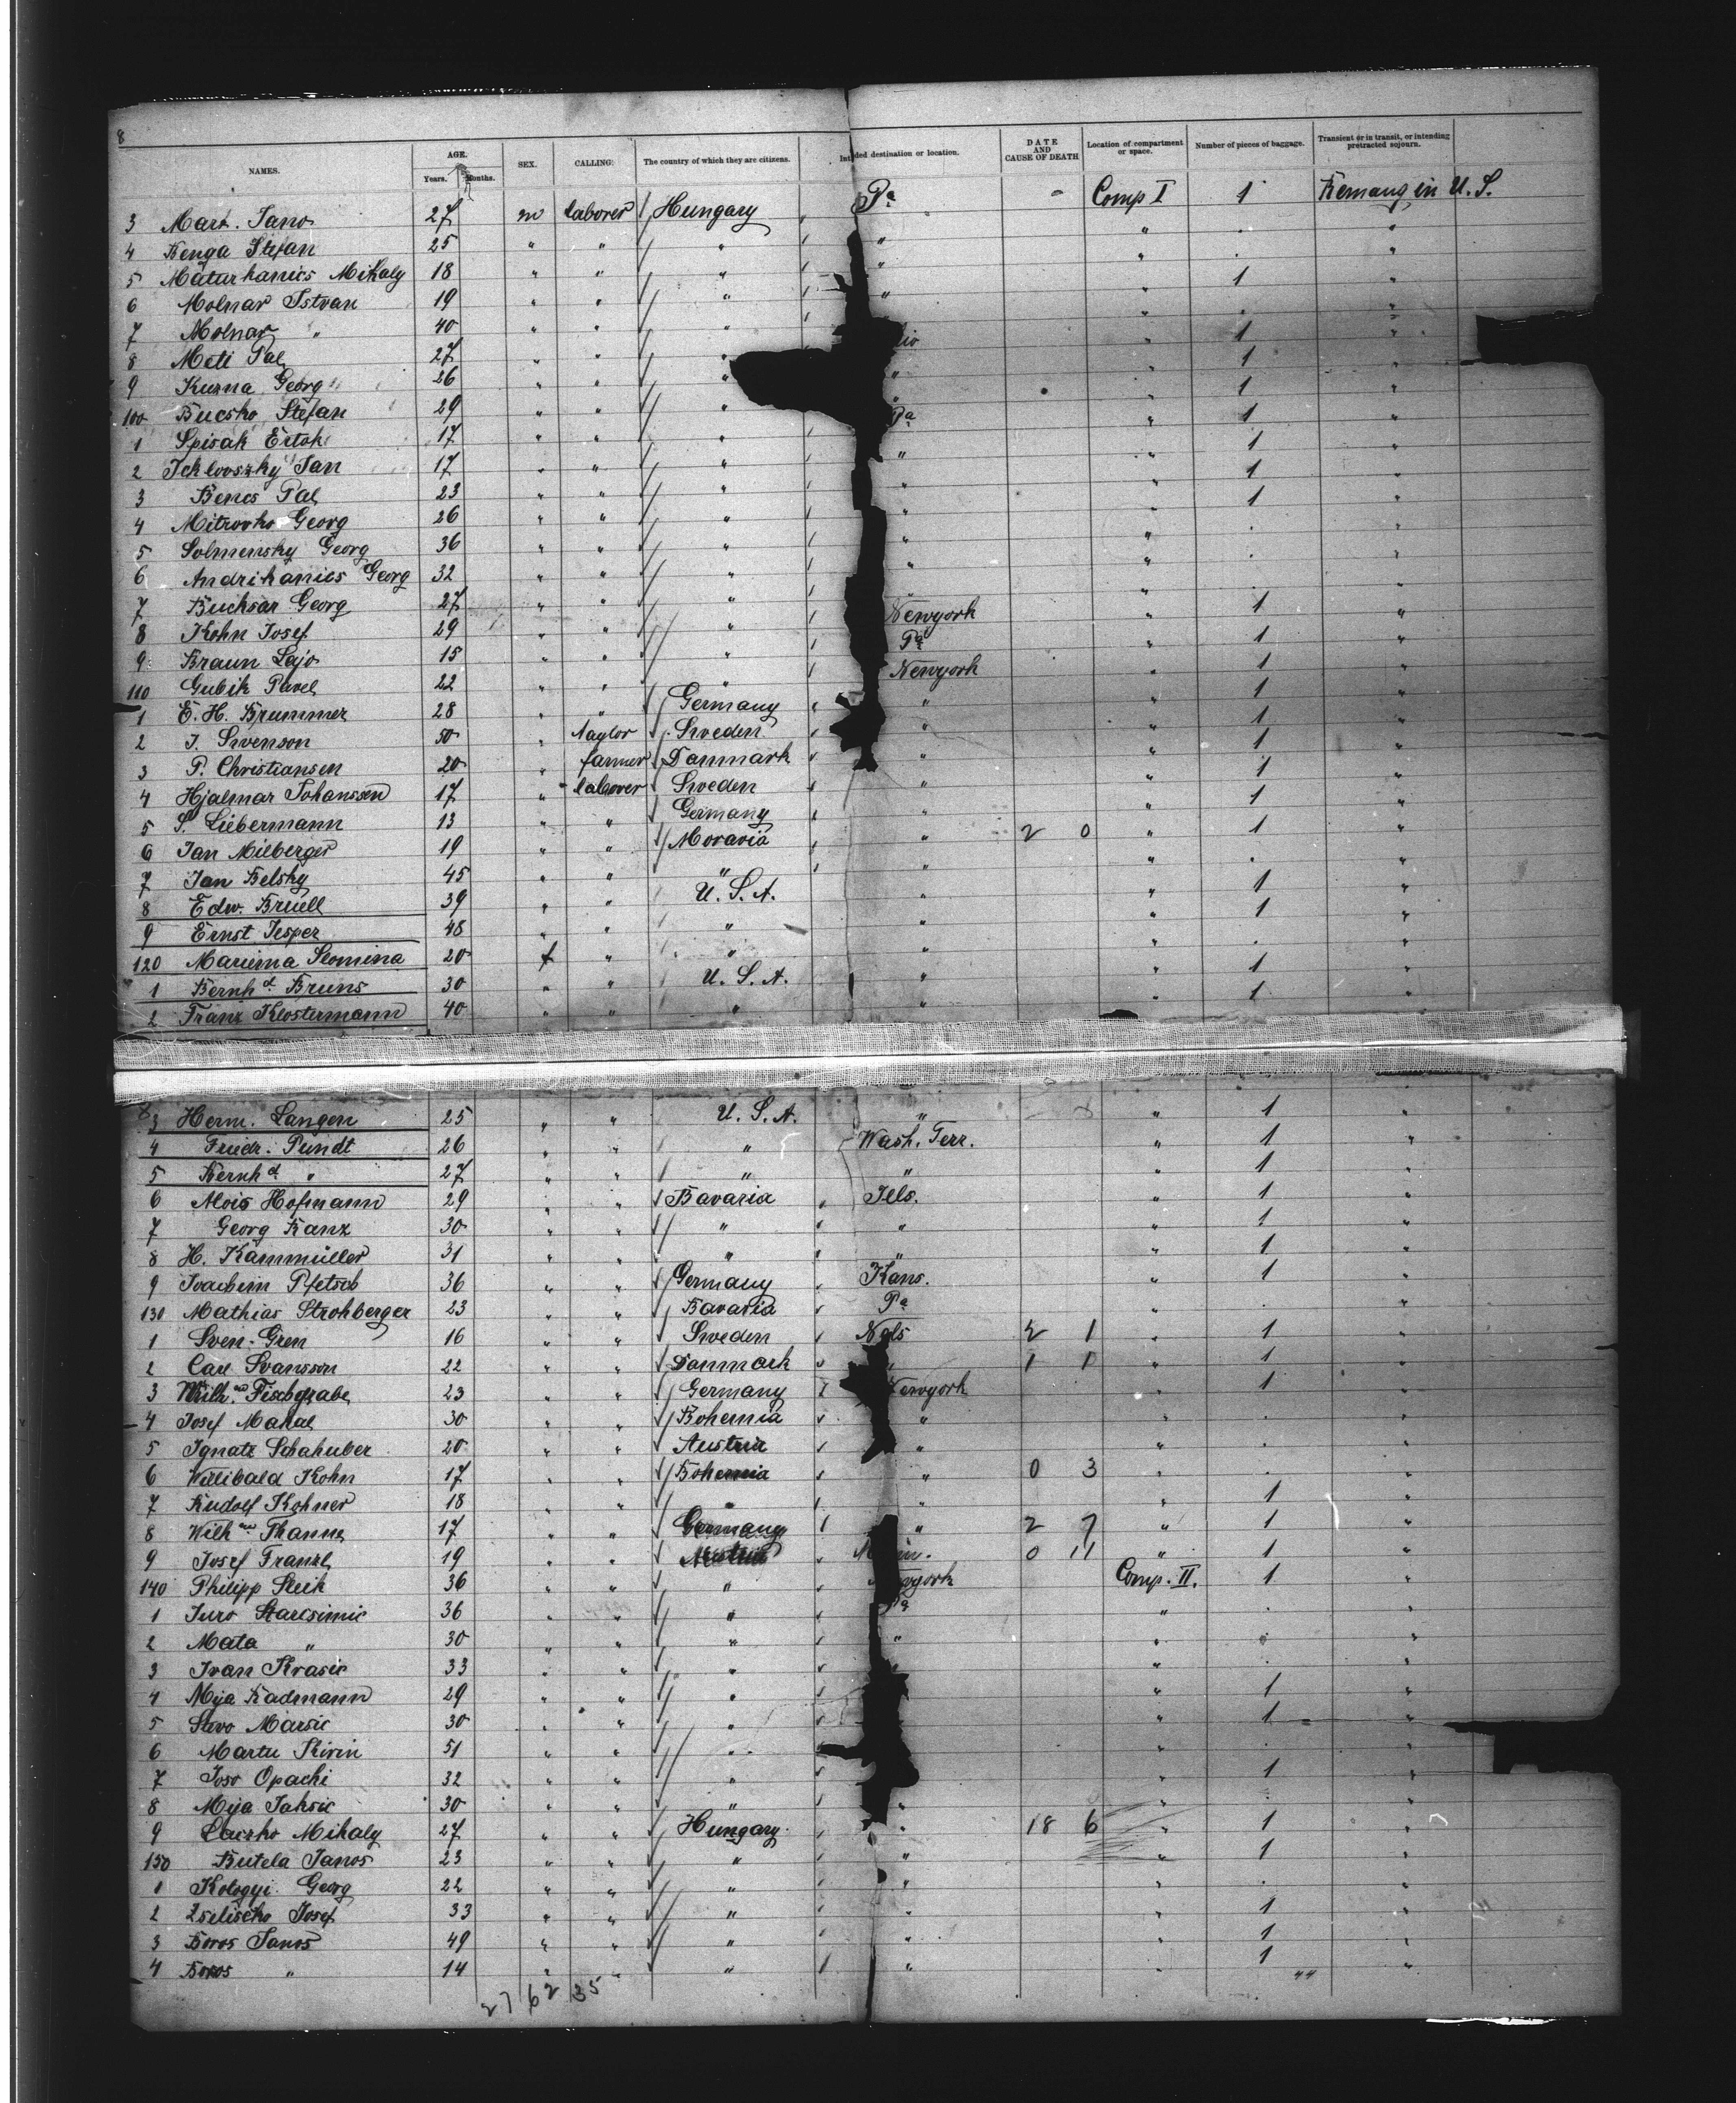 8
NAMES. AGE. Years. Months. SEX. CALLING. The country of which they are citizens. Intended destination or location. DATE AND CAUSE OF DEATH Location of compartment or space. Number of pieces of baggage. Transient or in transit, or intending protracted sojourn.
3 Mart. Jano 27 m laborer Hungary Pa - Comp I 1 Remang in U.S.
4 Benga Stefan 25 " " " " " . "
5 Maturkanics Mihaly 18 " " " " " 1 "
6 Molnar Istvan 19 " " " " " . "
7 Molnar " 40 " " " " 1 "
8 Meti Pal 27 " " " " 1 "
9 Kuzna Georg 26 " " " " " 1 "
100 Bucsko Stefan 29 " " " Pa " 1 "
1 Spisak 17 " " " " " 1 "
2 Jan 17 " " " " " 1 "
3 Bencs Pal 23 " " " " " 1 "
4 Mitrovko Georg 26 " " " " " . "
5 Solmensky Georg 36 " " " " " . "
6 Andrikanics Georg 32 " " " " " . "
7 Bucksar Georg 27 " " " Newyork " 1 "
8 Kohn Josef 29 " " " Pa " 1 "
9 Braun Lajo 15 " " " Newyork " 1 "
110 Gubik Pavel 22 " " " " " 1 "
1 E. H. Brummer 28 " " Germany " " 1 "
2 J. Swenson 50 " taylor Sweden " " 1 "
3 P. Christiansen 20 " farmer Danmark " " 1 "
4 Hjalmar Johanssen 17 " laborer Sweden " " 1 "
5 S. Liebermann 13 " " Germany " 2 0 " 1 "
6 Jan Milberger 19 " " Moravia " " . "
7 Jan Belsky 45 " " " " " 1 "
8 Edw. Bruell 39 " " U. S. A. " " 1 "
9 Ernst Jesper 48 " " " " " . "
120 Mariema Slomina 20 f " " " " 1 "
1 Bernhd. Bruns 30 " " U. S. A. " " 1 "
2 Franz Klostermann 40 " " "
3 Herm. Langen 25 " " U. S. A. " " 1 "
4 Friedr. Pundt 26 " " " Wash. Terr. " 1 "
5 Bernhd " 27 " " " " " 1 "
6 Alois Hofmann 29 " " Bavaria Ills. " 1 "
7 Georg Ranz 30 " " " " " 1 "
8 H. Kammüller 31 " " " " " 1 "
9 Joachim Pfetsch 36 " " Germany Kans. " 1 "
130 Mathias Strohberger 23 " " Bavaria Pa " . "
1 Sven Gren 16 " " Sweden 2 1 " 1 "
2 Carl Svansson 22 " " Danmark " 1 0 " 1 "
3 Wilh. Fischgrabe 23 " " Germany Newyork " 1 "
4 Josef Mahal 30 " " Bohemia " " . "
5 Ignatz Schahuber 20 " " Austria " " . "
6 Willibald Kohn 17 " " Bohemia " 0 3 " . "
7 Rudolf Kohner 18 " " " " " 1 "
8 Wilh. Thanne 17 " " Germany " 2 7 " 1 "
9 Josef Franzl 19 " " Austria 0 11 " 1 "
140 Philipp Sleik 36 " " " Newyork Comp. II. 1 "
1 Juro Starcsimic 36 " " " Pa " . "
2 Mata " 30 " " " " " . "
3 Ivan Krasic 33 " " " " . "
4 Mija Radmann 29 " " " " 1 "
5 Stevo Marsic 30 " " " " 1 "
6 Martu Kirin 51 " " " " . "
7 Joso Opachi 32 " " " " 1 "
8 Mija Jaksic 30 " " " " " . "
9 Laczko Mihaly 27 " " Hungary " 18 6 " 1 "
150 Butela Janos 23 " " " " " 1 "
1 Kologyi Georg 22 " " " " " . "
2 Zseliscko Josef 33 " " " " " 1 "
3 Boros Janos 49 " " " " " 1 "
4 Boros " 14 " " " " " 1 "
27 62 35 44